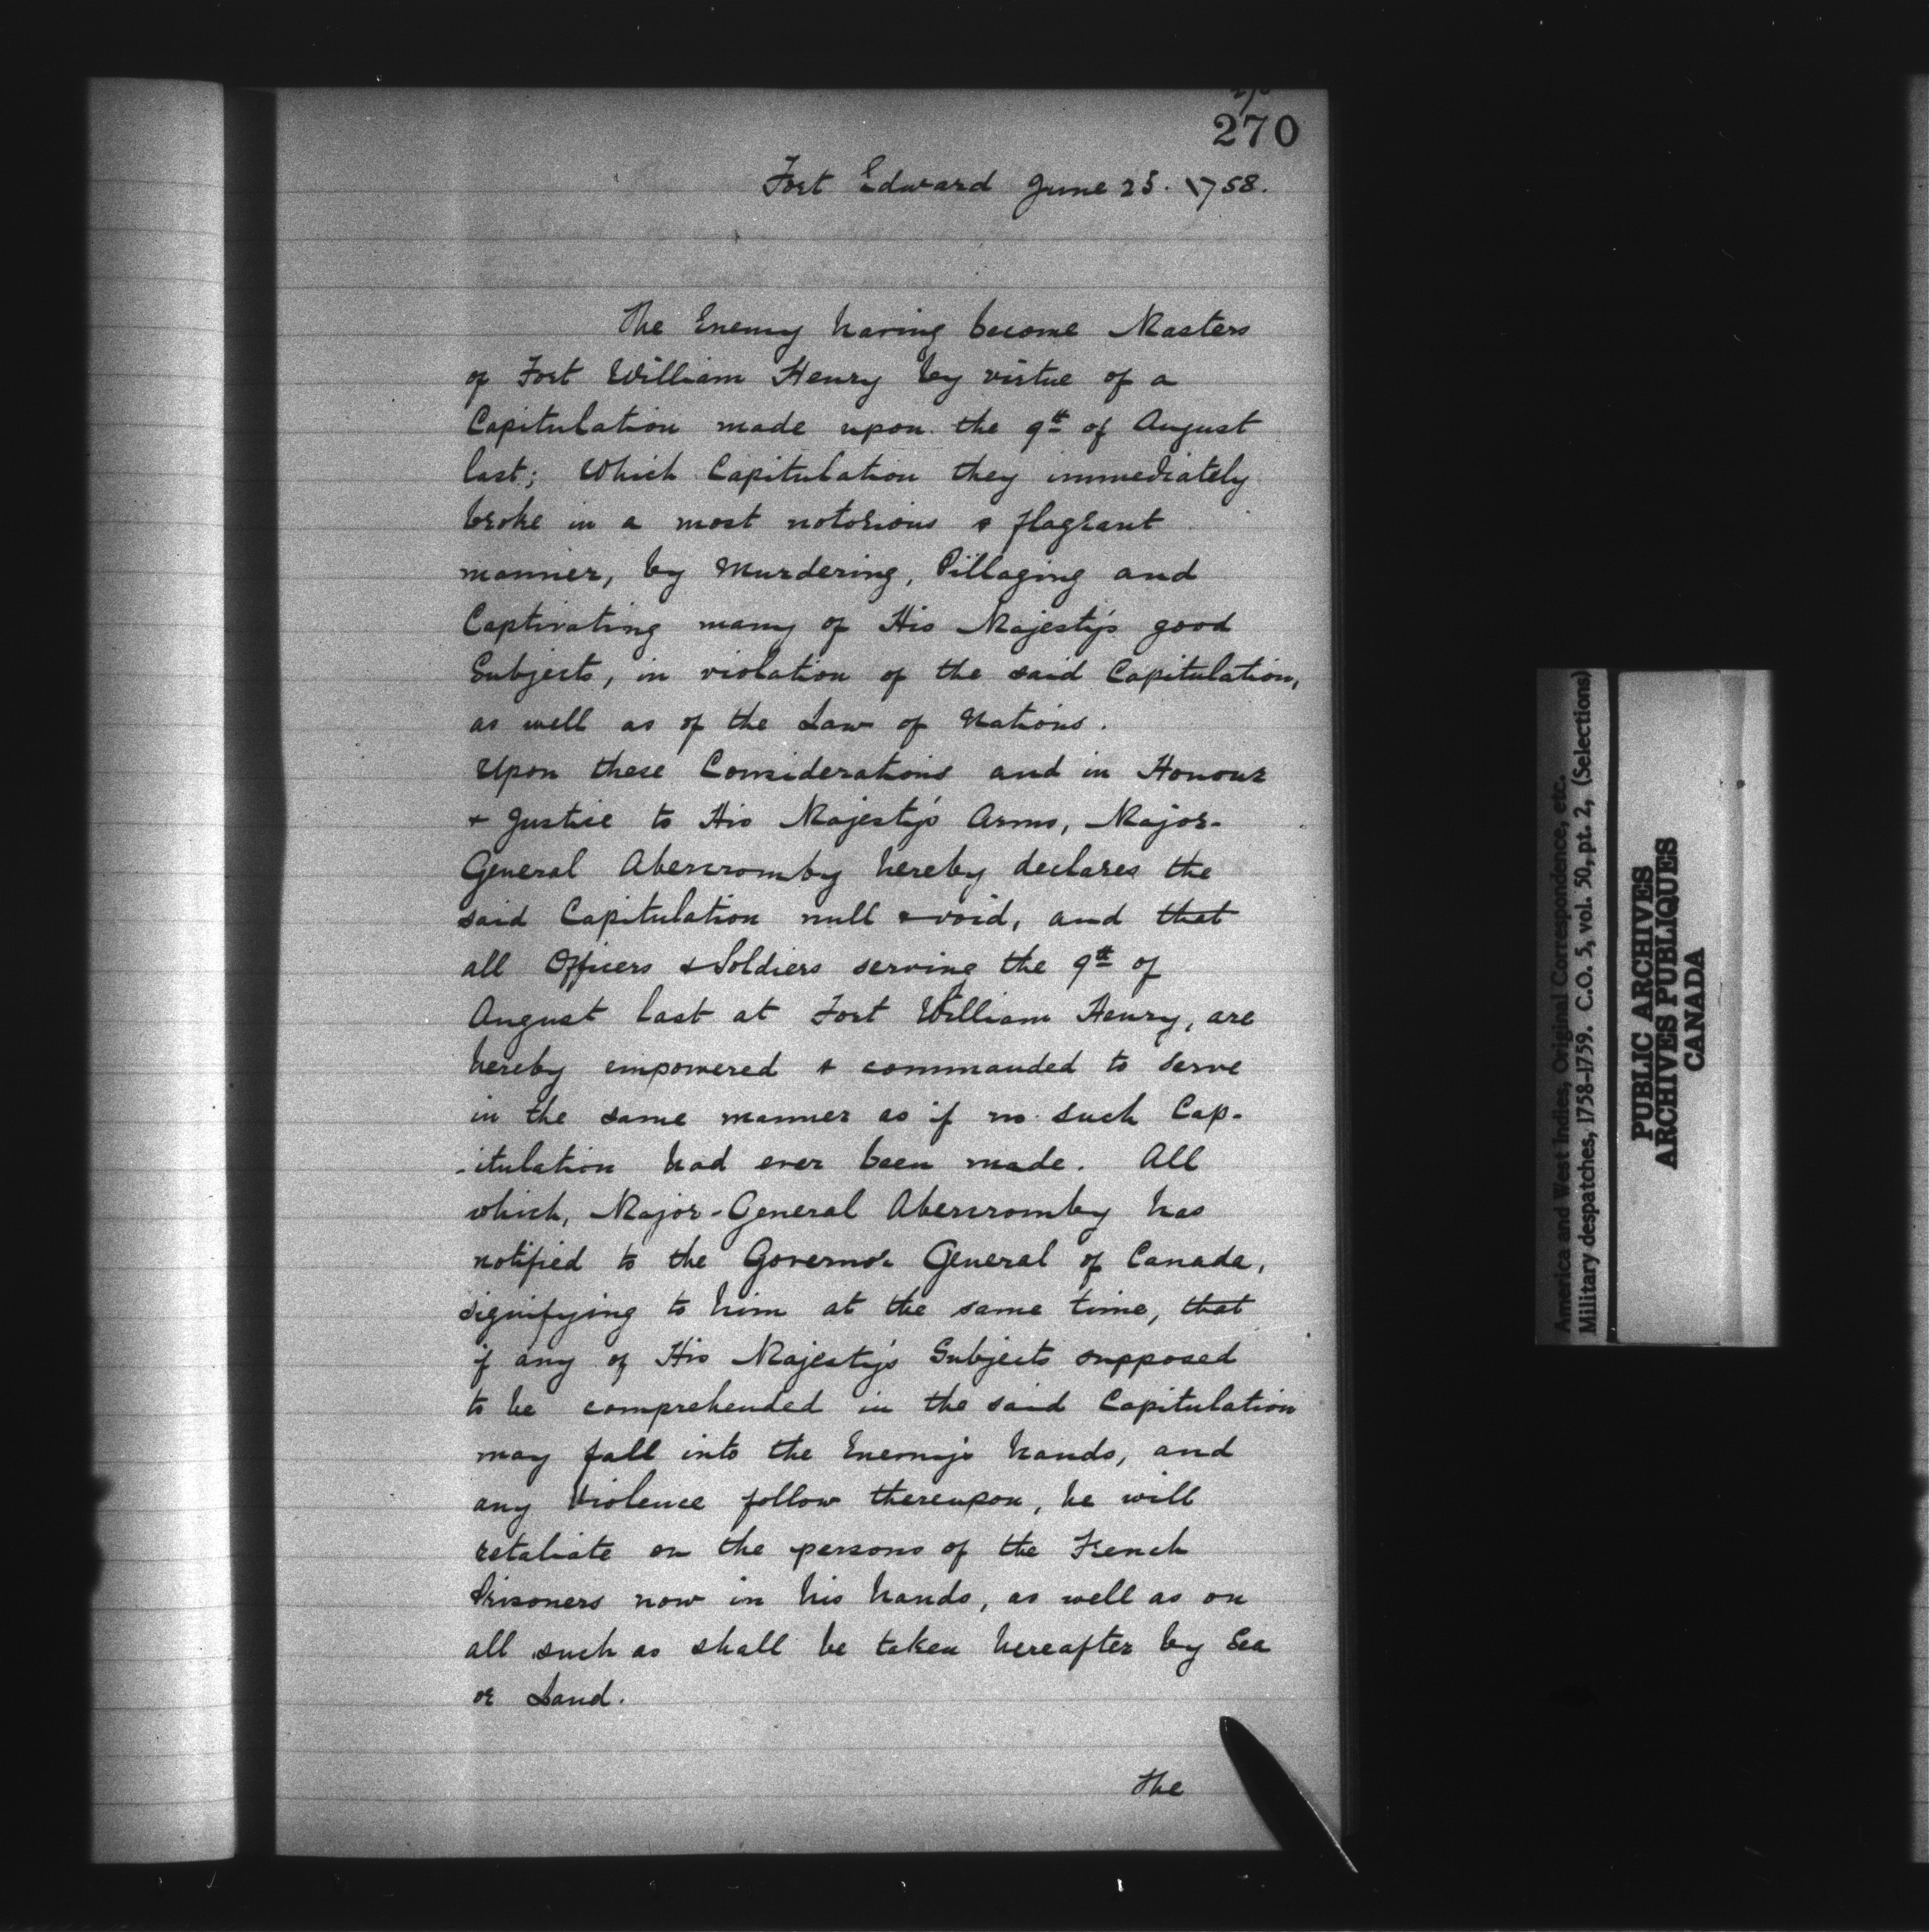 270
Fort Edward June 25. 1758.
The Enemy having become Masters
of Fort William Henry by virtue of a
Capitulation made upon the 9th of August
last; Which Capitulation they immediately
broke in a most notorious & flagrant
manner, by Murdering, Pillaging and
Captivating many of His Majesty's good
Subjects, in violation of the said Capitulation,
as well as of the Law of Nations.
Upon these Considerations and in Honour
& Justice to His Majesty's Arms, Major-
General Abercromby hereby declares the
said Capitulation null & void, and that
all Officers & Soldiers serving the 9th of
August last at Fort William Henry, are
hereby empowered & commanded to serve
in the same manner as if no such Cap-
-itulation had ever been made. All
which, Major-General Abercromby has
notified to the Governor General of Canada,
signifying to him at the same time, that
if any of His Majesty's Subjects supposed
to be comprehended in the said Capitulation
may fall into the Enemy's hands, and
any Violence follow thereupon, he will
retaliate on the persons of the French
Prisoners now in his hands, as well as on
all such as shall be taken hereafter by Sea
or Land.
The
America and West Indies, Original Correspondence, etc.
Military despatches, 1758-1759. C.O. 5, vol. 50, pt. 2, (Selections)
PUBLIC ARCHIVES
ARCHIVES PUBLIQUES
CANADA